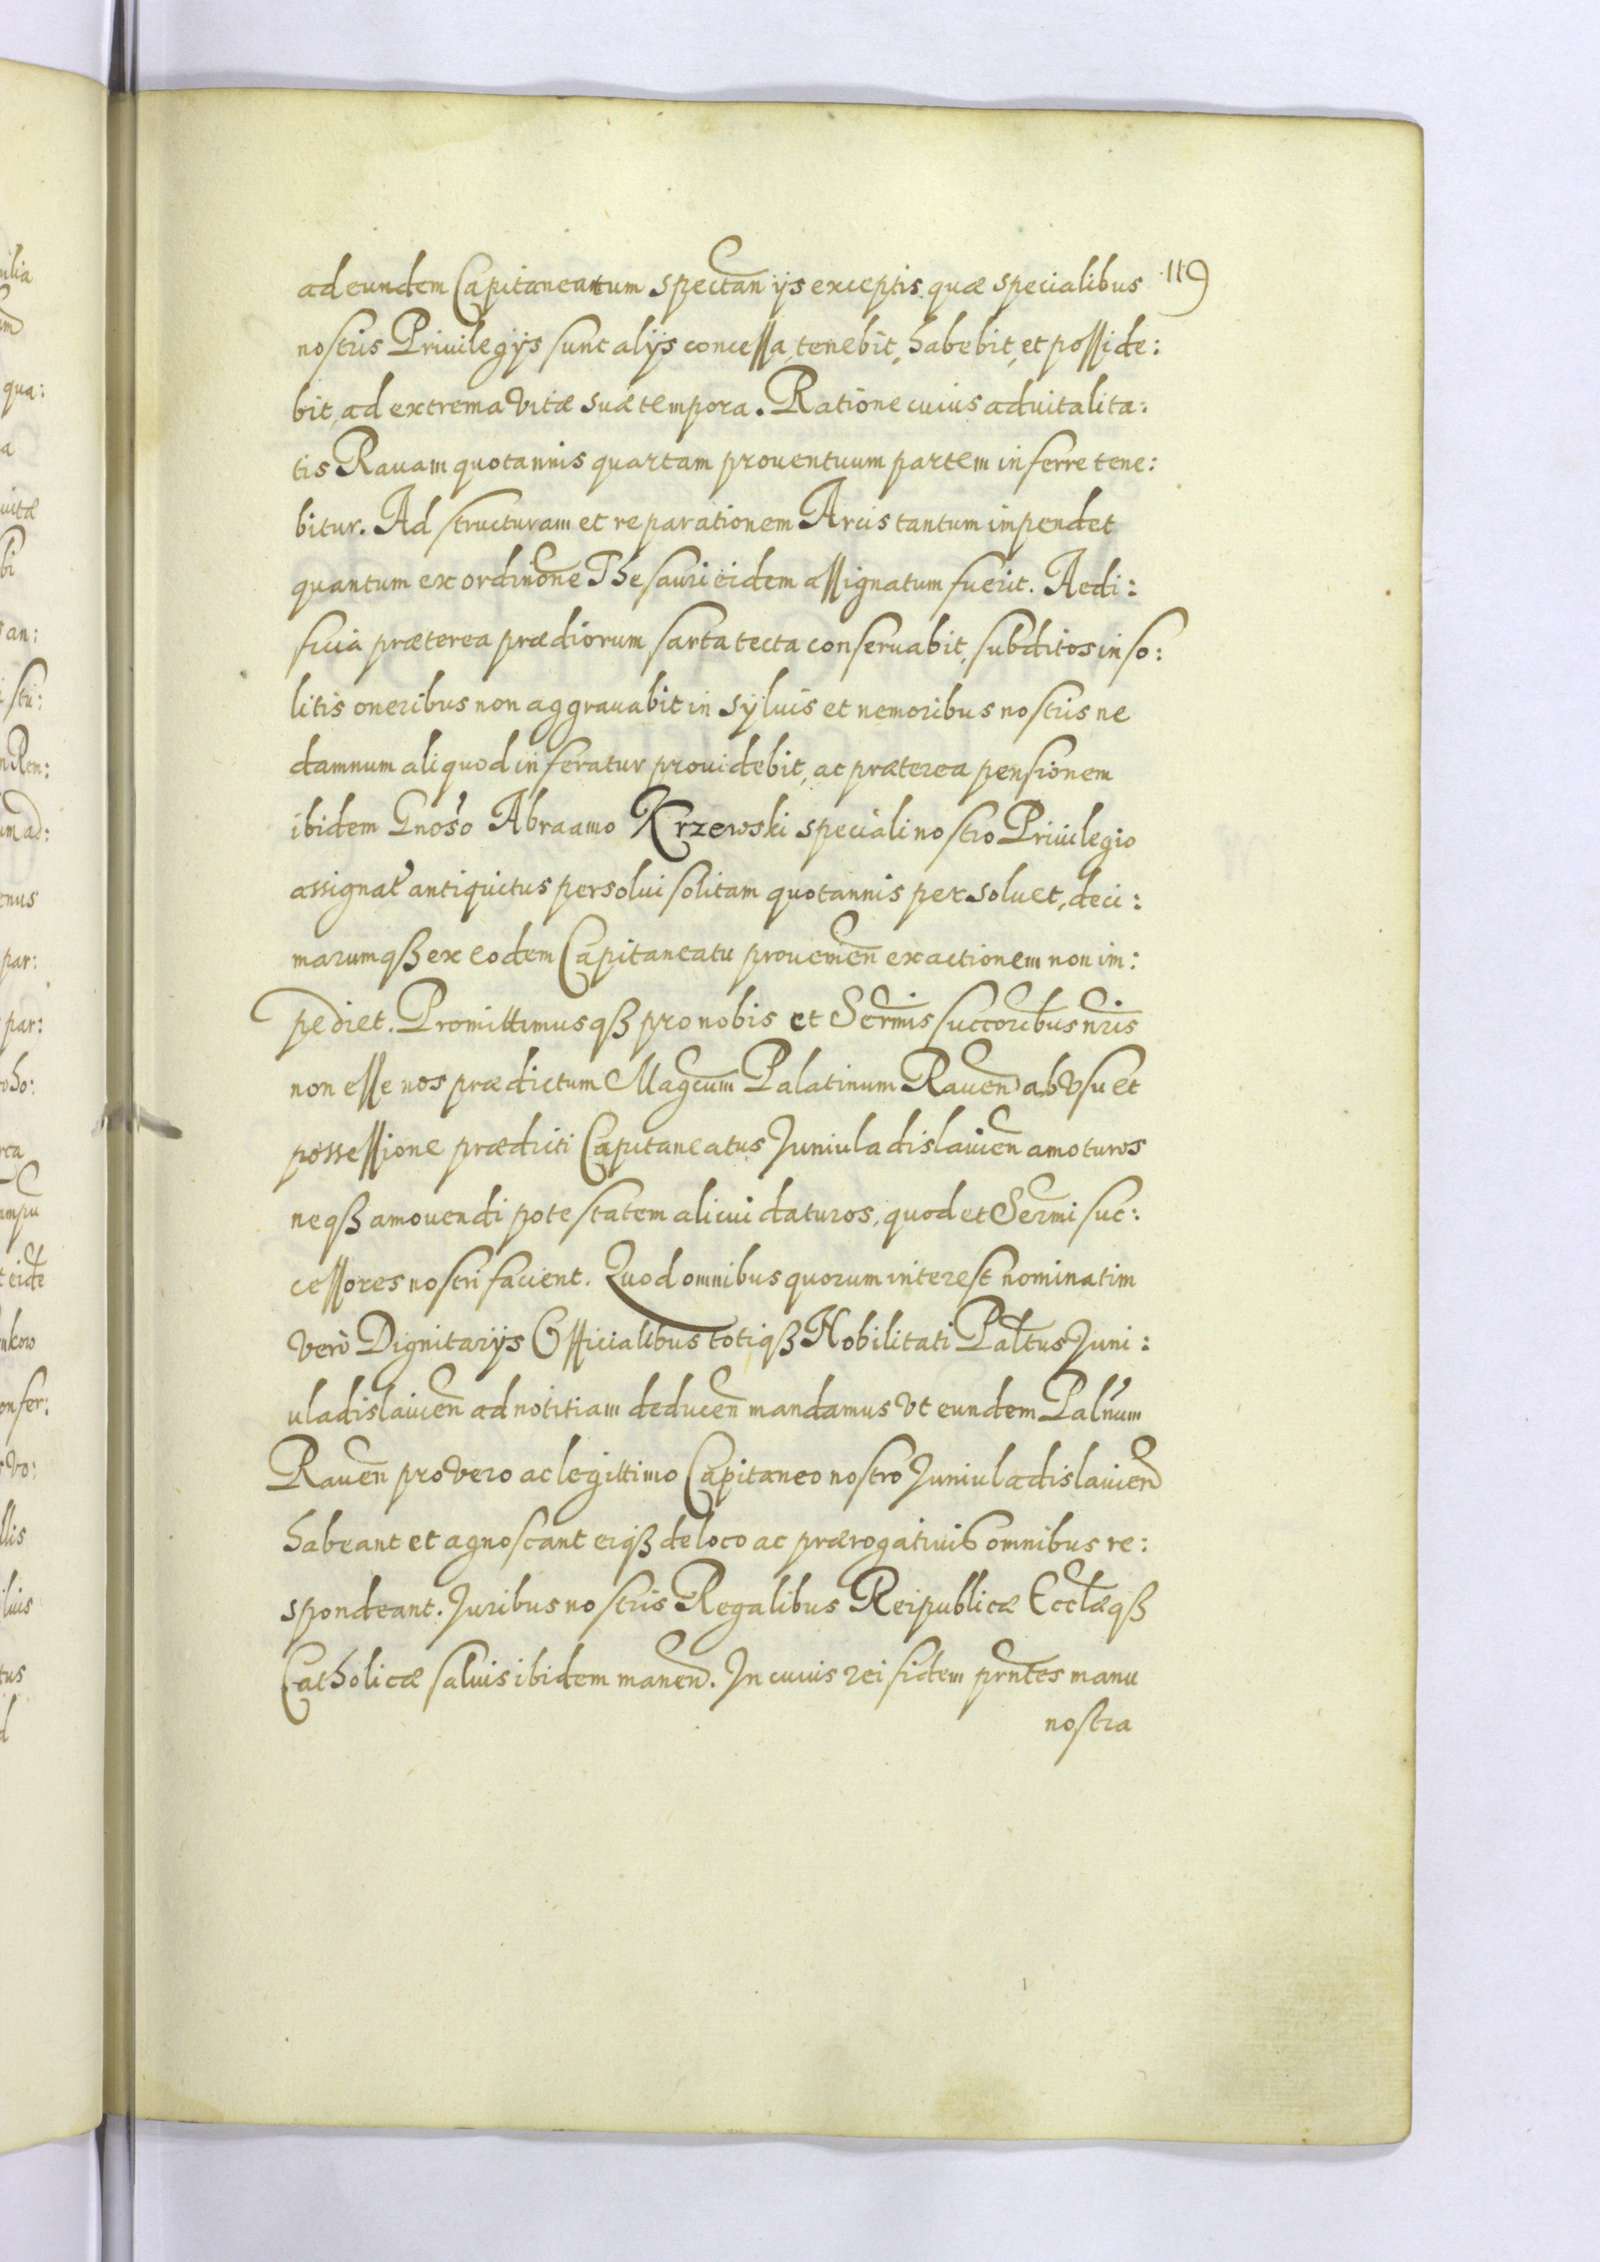 119
ad eundem Capitaneatum spectan ijs exceptis quæ specialibus
nostris Priuilegijs sunt alijs concessa, tenebit, habebit, et posside:
bit, ad extrema vitæ suæ tempora. Ratione cuius aduitalita:
tis Rauam quotannis quartam prouentuum partem inferre tene:
bitur. Ad structuram et reparationem Arcis tantum impendet
quantum ex ordinone Thesauri eidem assignatum fuerit. Aedi:
ficia præterea prædiorum sarta tecta conseruabit, subditos inso:
litis oneribus non aggrauabit in syluis et nemoribus nostris ne
damnum aliquod inferatur prouidebit, ac præterea pensionem
ibidem Gnoso Abraamo Krzewski speciali nostro Priuilegio
assignat antiquitus persolui solitam quotannis persoluet, deci:
marumqß ex eodem Capitaneatu prouenien exactionem non im:
pediet. Promittimusqß pro nobis et Sermis succoribus nris
non esse nos prædictum Magcum Palatinum Rauen ab vsu et
possessione prædicti Capitaneatus Juniuladislauien amoturos
neqß amouendi potestatem alicui daturos, quod et Sermi suc:
cessores nostri facient. Quod omnibus quorum interest nominatim
verò Dignitarijs Officialibus totiqß Nobilitati Paltus Juni:
uladislauien ad notitiam deducen mandamus vt eundem Palnum
Rauen pro vero ac legittimo Capitaneo nostro Juniuladislauien
habeant et agnoscant eiqß de loco ac prærogatiuis omnibus re:
spondeant. Juribus nostris Regalibus Reipublicæ Ecclæqß
Catholicæ saluis ibidem manen. In cuius rei fidem prntes manu
nostra